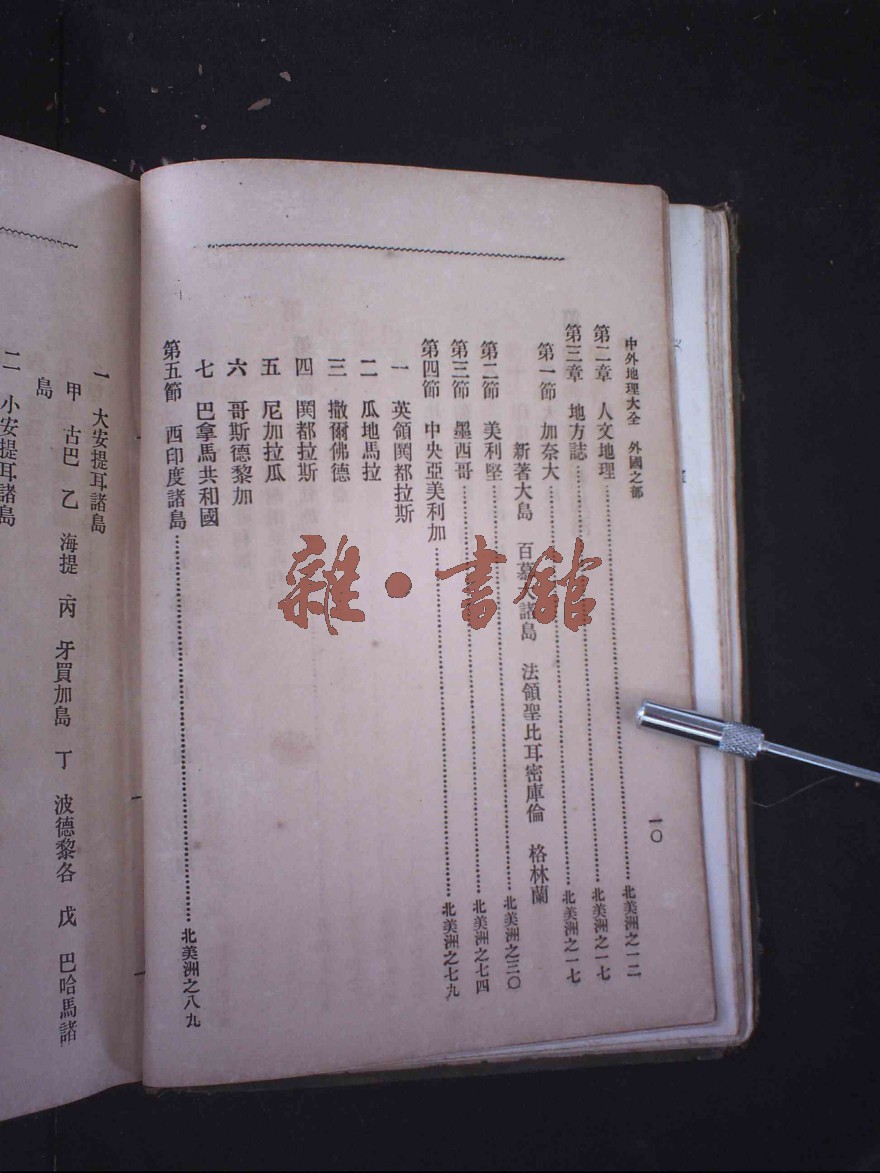 中外地理大全　外國之部
一〇
第二章　人文地理……北美洲之一二
第三章　地方誌……北美洲之一七
第一節　加奈大……北美洲之一七
新著大島　百慕大諸島　法領聖比耳密庫倫　格林蘭
第二節　美利堅……北美洲之三〇
第三節　墨西哥……北美洲之七四
第四節　中央亞美利加……北美洲之七九
一　英領閎都拉斯
二　瓜地馬拉
三　撒爾佛德
四　閎都拉斯
五　尼加拉瓜
六　哥斯德黎加
七　巴拿馬共和國
第五節　西印度諸島……北美洲之八九
一　大安提耳諸島
甲　古巴　乙　海提　丙　牙買加島　丁　波德黎各　戊　巴哈馬諸
島
二　小安提耳諸島
雜·書館